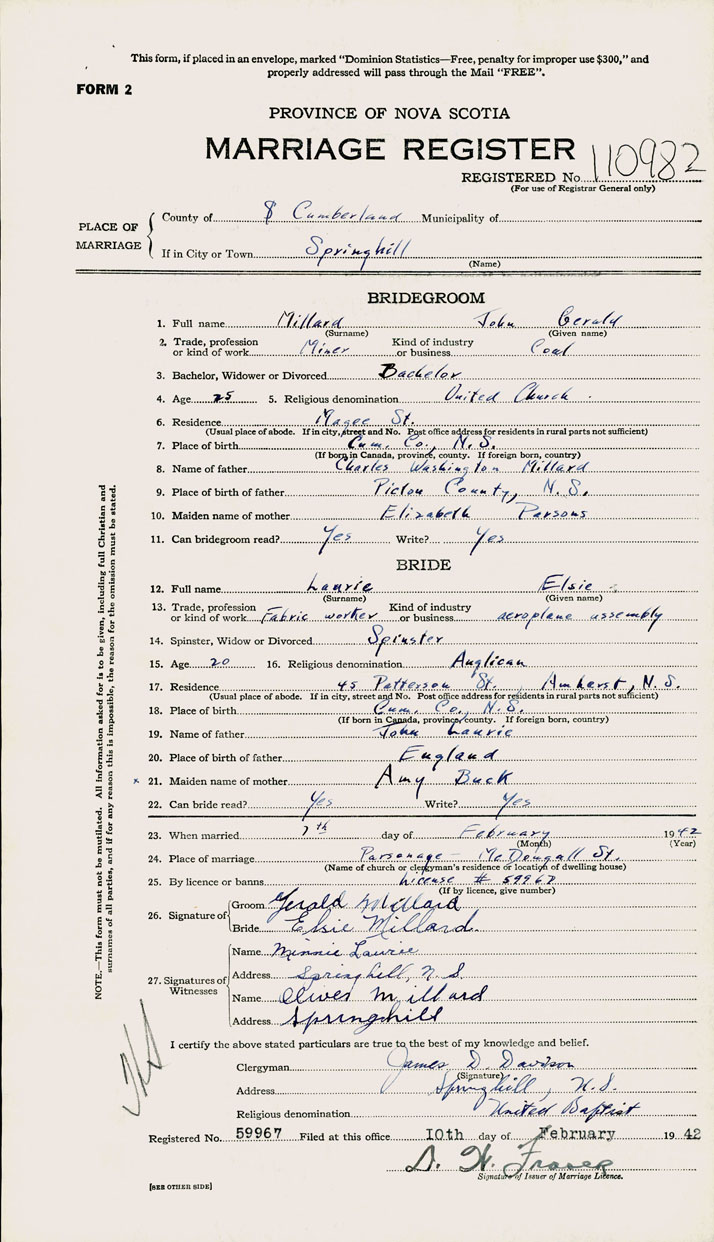 This form, if placed in an envelope, marked "Dominion Statistics—Free, penalty for improper use $300," and
properly addressed will pass through the Mail "FREE".
FORM 2
PROVINCE OF NOVA SCOTIA
MARRIAGE REGISTER
REGISTERED No. 110982
(For use of Registrar General only)
PLACE OF MARRIAGE
County of Cumberland Municipality of
If in City or Town Springhill
(Name)
BRIDEGROOM
1. Full name Millard John Gerald
(Surname) (Given name)
2. Trade, profession or kind of work Miner Kind of industry or business Coal
3. Bachelor, Widower or Divorced Bachelor
4. Age 25 5. Religious denomination United Church
6. Residence Magee St.
(Usual place of abode. If in city, street and No. Post office address for residents in rural parts not sufficient)
7. Place of birth Cum. Co., N.S.
(If born in Canada, province, county. If foreign born, country)
8. Name of father Charles Washington Millard
9. Place of birth of father Pictou County, N.S.
10. Maiden name of mother Elizabeth Parsons
11. Can bridegroom read? Yes Write? Yes
BRIDE
12. Full name Laurie Elsie
(Surname) (Given name)
13. Trade, profession or kind of work Fabric worker Kind of industry or business aeroplane assembly
14. Spinster, Widow or Divorced Spinster
15. Age 20 16. Religious denomination Anglican
17. Residence 45 Patterson St., Amherst, N.S.
(Usual place of abode. If in city, street and No. Post office address for residents in rural parts not sufficient)
18. Place of birth Cum. Co., N.S.
(If born in Canada, province, county. If foreign born, country)
19. Name of father John Laurie
20. Place of birth of father England
x 21. Maiden name of mother Amy Buck
22. Can bride read? Yes Write? Yes
23. When married 7th day of February 1942
(Month) (Year)
24. Place of marriage Parsonage - McDougall St.
(Name of church or clergyman's residence or location of dwelling house)
25. By licence or banns License # 59967
(If by licence, give number)
26. Signature of
Groom Gerald Millard
Bride Elsie Millard.
27. Signatures of Witnesses
Name Minnie Laurie
Address Springhill, N.S
Name Oliver Millard
Address Springhill
I certify the above stated particulars are true to the best of my knowledge and belief.
Clergyman James D. Davison
(Signature)
Address Springhill, N.S.
Religious denomination United Baptist
Registered No. 59967 Filed at this office 10th day of February 1942
D. H. Fraser
Signature of Issuer of Marriage Licence.
[SEE OTHER SIDE]
NOTE.—This form must not be mutilated. All information asked for is to be given, including full Christian and
surnames of all parties, and if for any reason this is impossible, the reason for the omission must be stated.